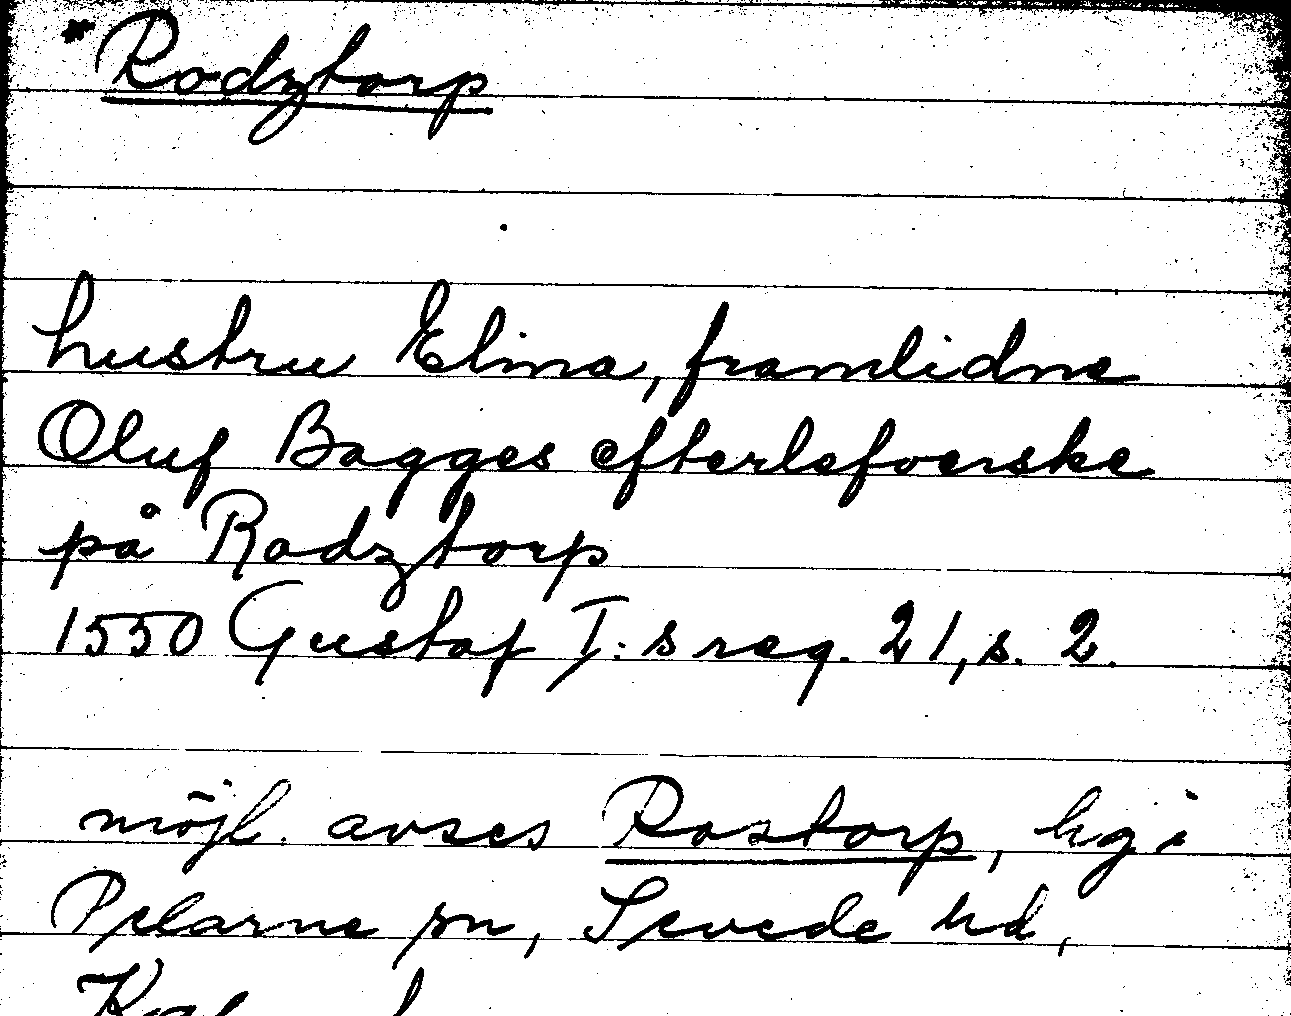 *Rodztorp
hustru Elina, framlidne
Oluf Bagges efterlefverske
på Rodztorp
1550 Gustaf I:s reg. 21, s. 2.
möjl. avses Rostorp, hg i
Pelarne sn, Sevede hd,